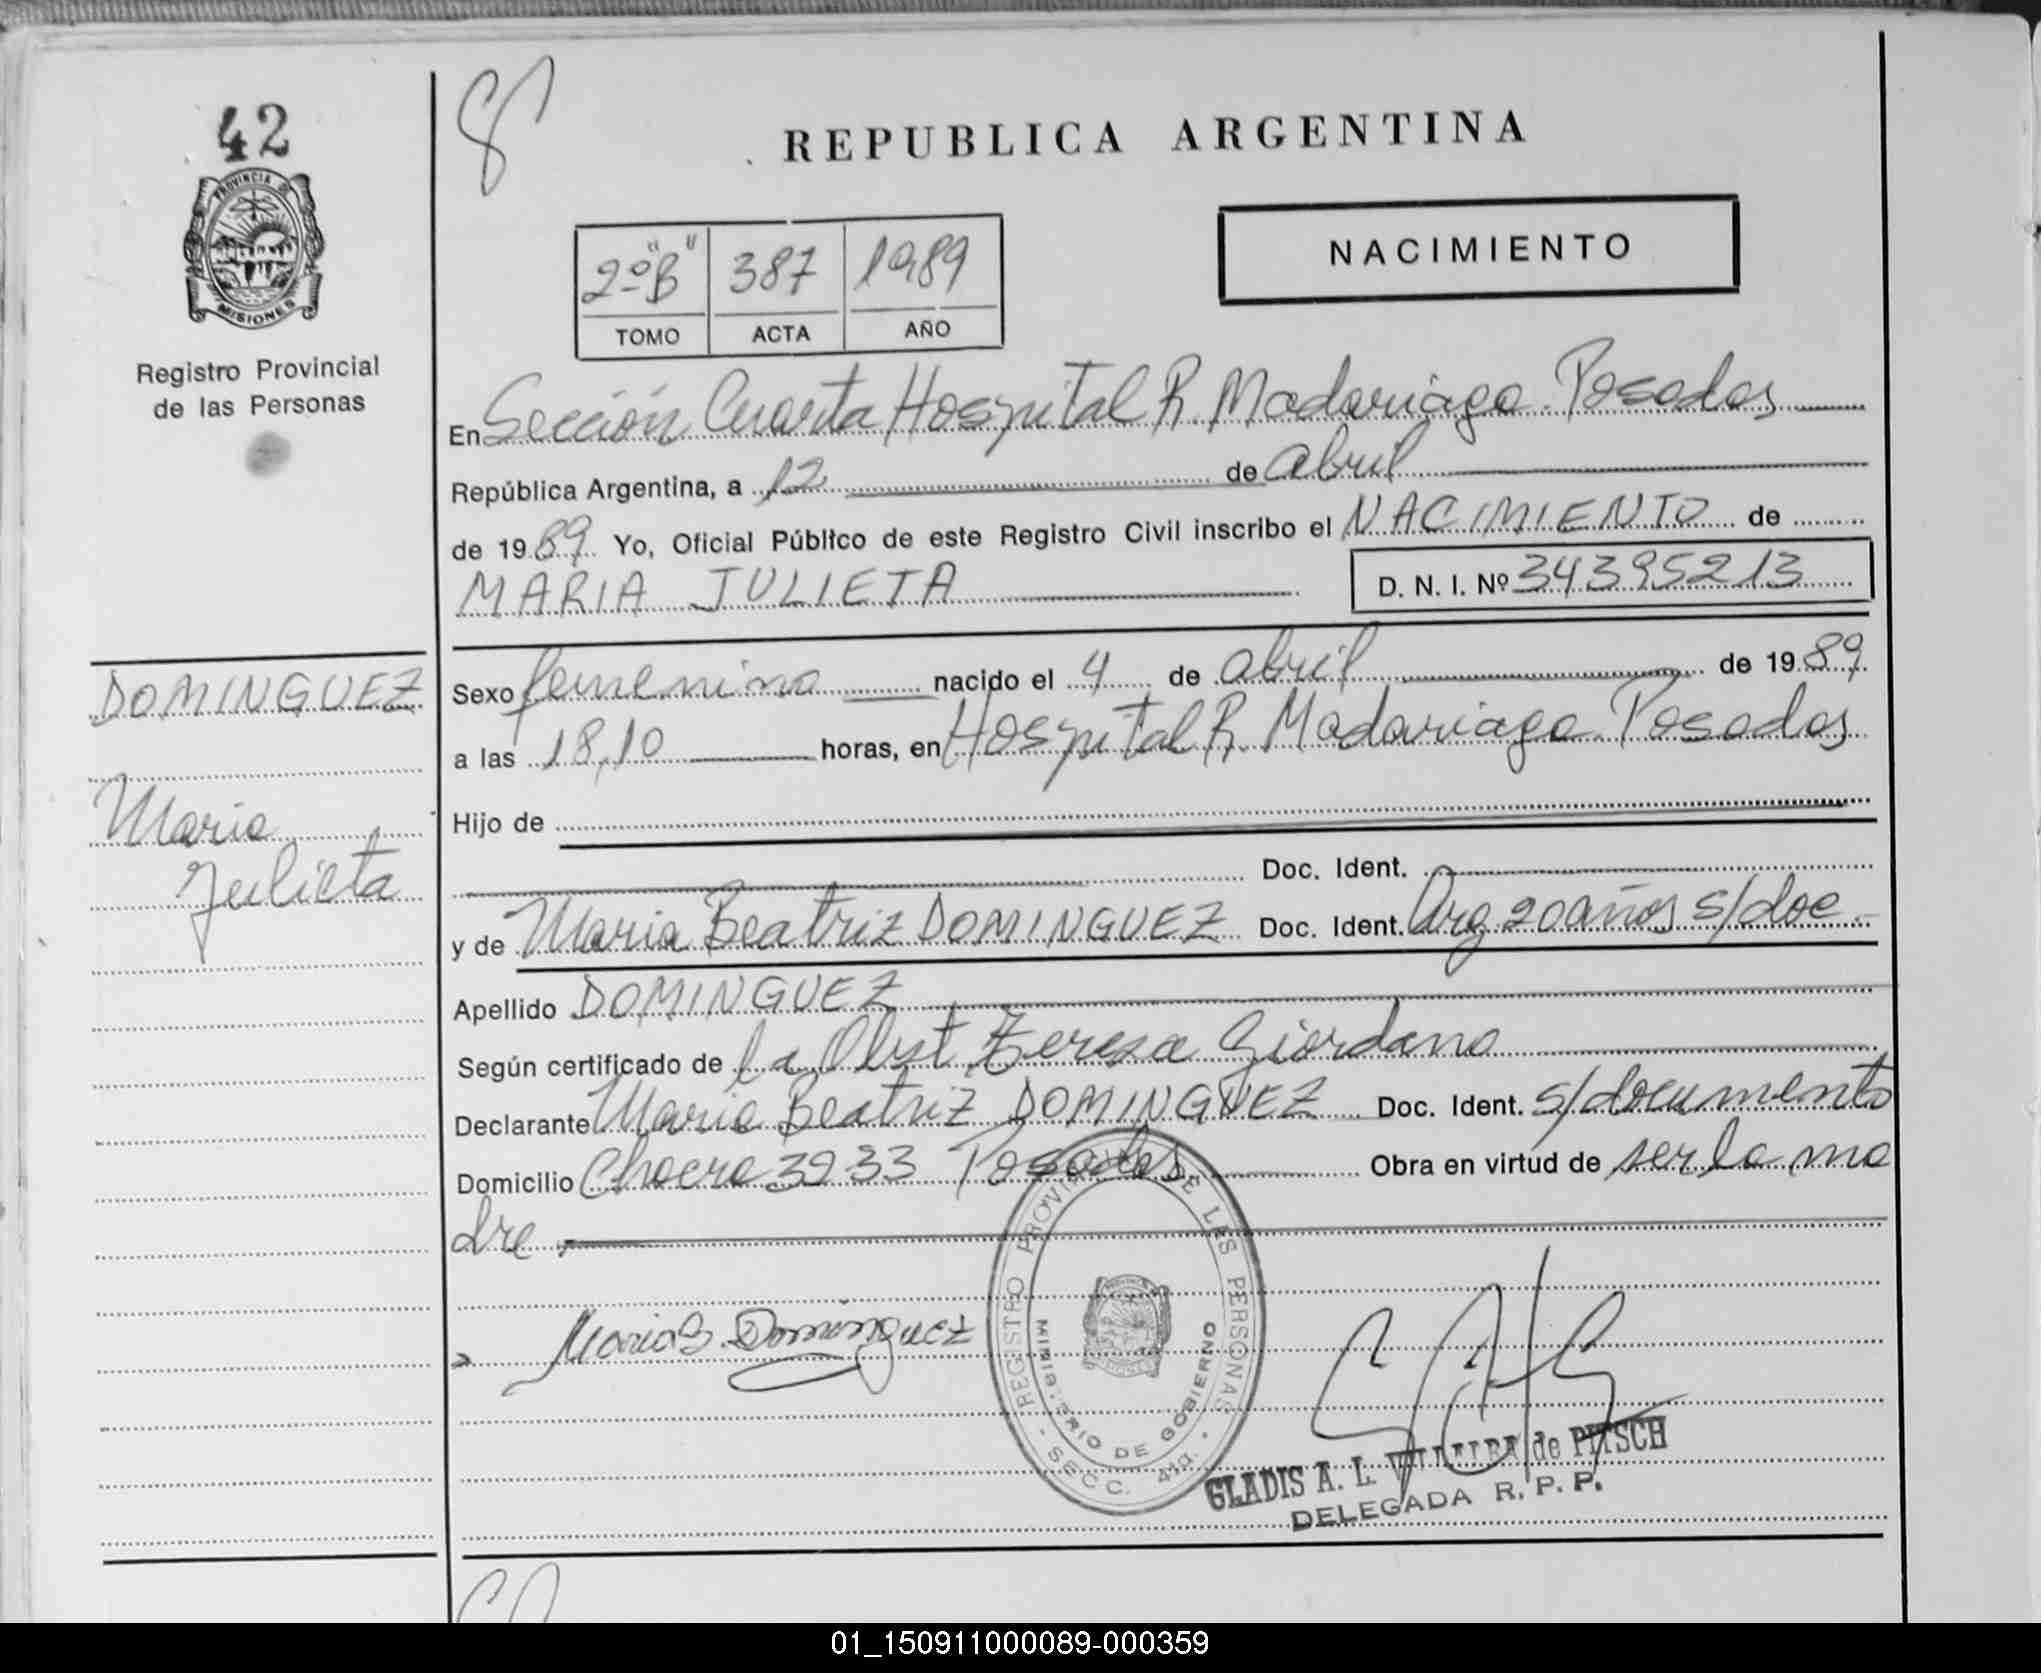 42
PROVINCIA DE
MISIONES
Registro Provincial
de las Personas
REPUBLICA ARGENTINA
NACIMIENTO
2º "B" 387 1989
TOMO ACTA AÑO
En Sección Cuarta Hospital R. Madariaga. Posadas
República Argentina, a 12 de abril
de 1989 Yo, Oficial Público de este Registro Civil inscribo el NACIMIENTO de
MARIA JULIETA D. N. I. Nº 34395213
DOMINGUEZ
Maria
Julieta
Sexo femenino nacido el 4 de abril de 1989
a las 18,10 horas, en Hospital R. Madariaga. Posadas
Hijo de
Doc. Ident.
y de Maria Beatriz DOMINGUEZ Doc. Ident. Arg 20 años s/doc.
Apellido DOMINGUEZ
Según certificado de la Obst. Teresa Giordano
Declarante Maria Beatriz DOMINGUEZ Doc. Ident. s/documento
Domicilio 3933 Posadas Obra en virtud de ser la ma
dre
Maria B. Dominguez
REGISTRO PROVINCIAL DE LAS PERSONAS
MINISTERIO DE GOBIERNO
- SECC. 4ta. -
GLADIS A. L. VILLALBA de PITSCH
DELEGADA R. P. P.
01_150911000089-000359